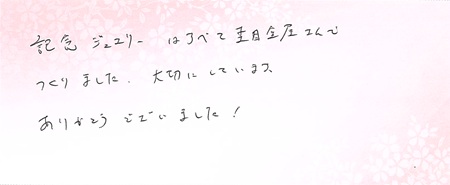 記念ジュエリーはすべて杢目金屋さんで
つくりました。大切にしています。
ありがとうございました!